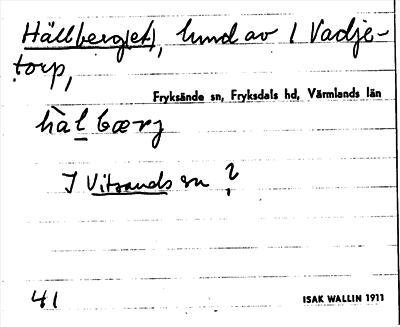 Hällberg(et), lund av 1 Vadje-
torp,
Fryksände sn, Fryksdals hd, Värmlands län
hàl bærj
I Vitsands sn ?
41
ISAK WALLIN 1911